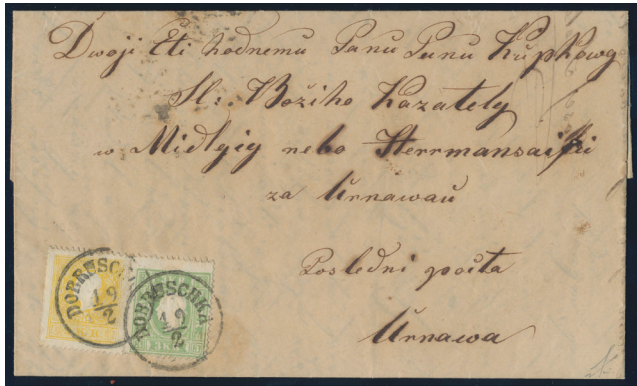 Dwoji Eti hodnemu Panu Panu Kupkowy
Sl: Božiho Kazately
w Midlgig nebo Herrmansaifri
za Urnawau
Posledni pošta
Urnawa
DOBRUSCHKA
19/2
DOBRUSCHKA
19/2